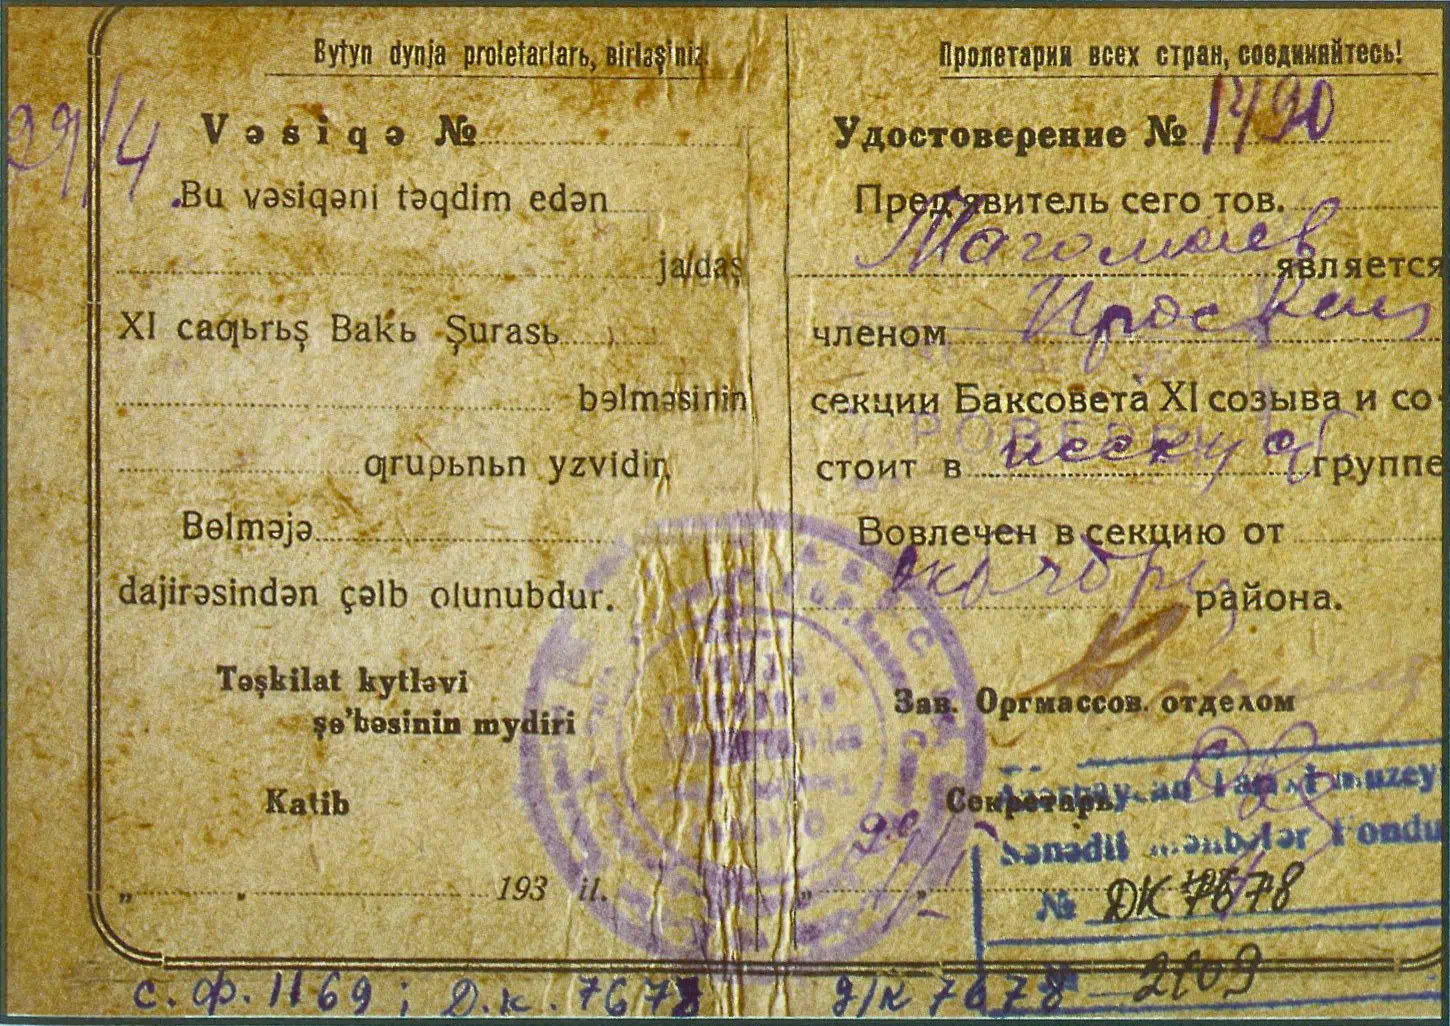 Bytyn dynja proletarlarь, birləşiniz!
29/4
Vəsiqə №
Bu vəsiqəni təqdim edən
jaldaş
XI caƣьrьş Bakь Şurasь
bəlməsinin
qrupьnьn yzvidir.
Bɵlməjə
dajirəsindən çəlb olunubdur.
Təşkilat kytləvi
şə'bəsinin mydiri
Katib
„ „ 193 il.
Пролетарии всех стран, соединяйтесь!
Удостоверение № 1490
Пред'явитель сего тов.
Магомаев является
членом Просвещ
секции Баксовета XI созыва и со-
стоит в группе
Вовлечен в секцию от
района.
Зав. Оргмассов. отделом
Секретарь
Azərbaycan Tarixi muzeyi
Sənədli mənbələr Fondu
№ ДК 7678
2109
с.ф. 1169; Д.к. 7678 д/к 7678